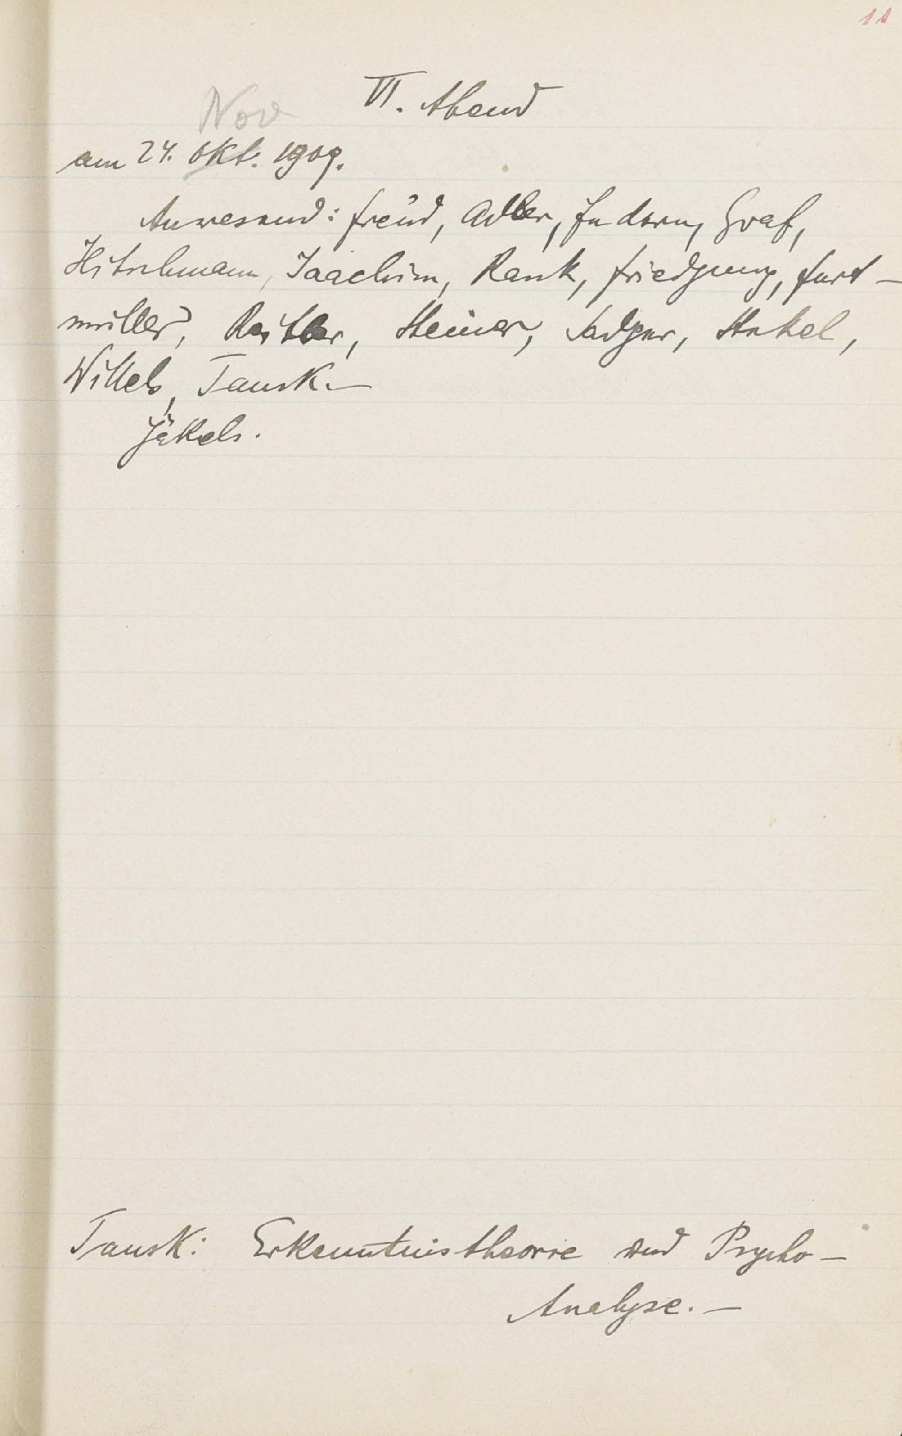 11
VI. Abend
Nov
am 24. Okt. 1909.
Anwesend: Freud, Adler, Federn, Graf,
Hitschmann, Joachim, Rank, Friedjung, Furt-
müller, Reitler, Steiner, Sadger, Stekel,
Wittels, Tausk.—
Jekels.
Tausk: Erkenntnistheorie und Psycho-
Analyse.—